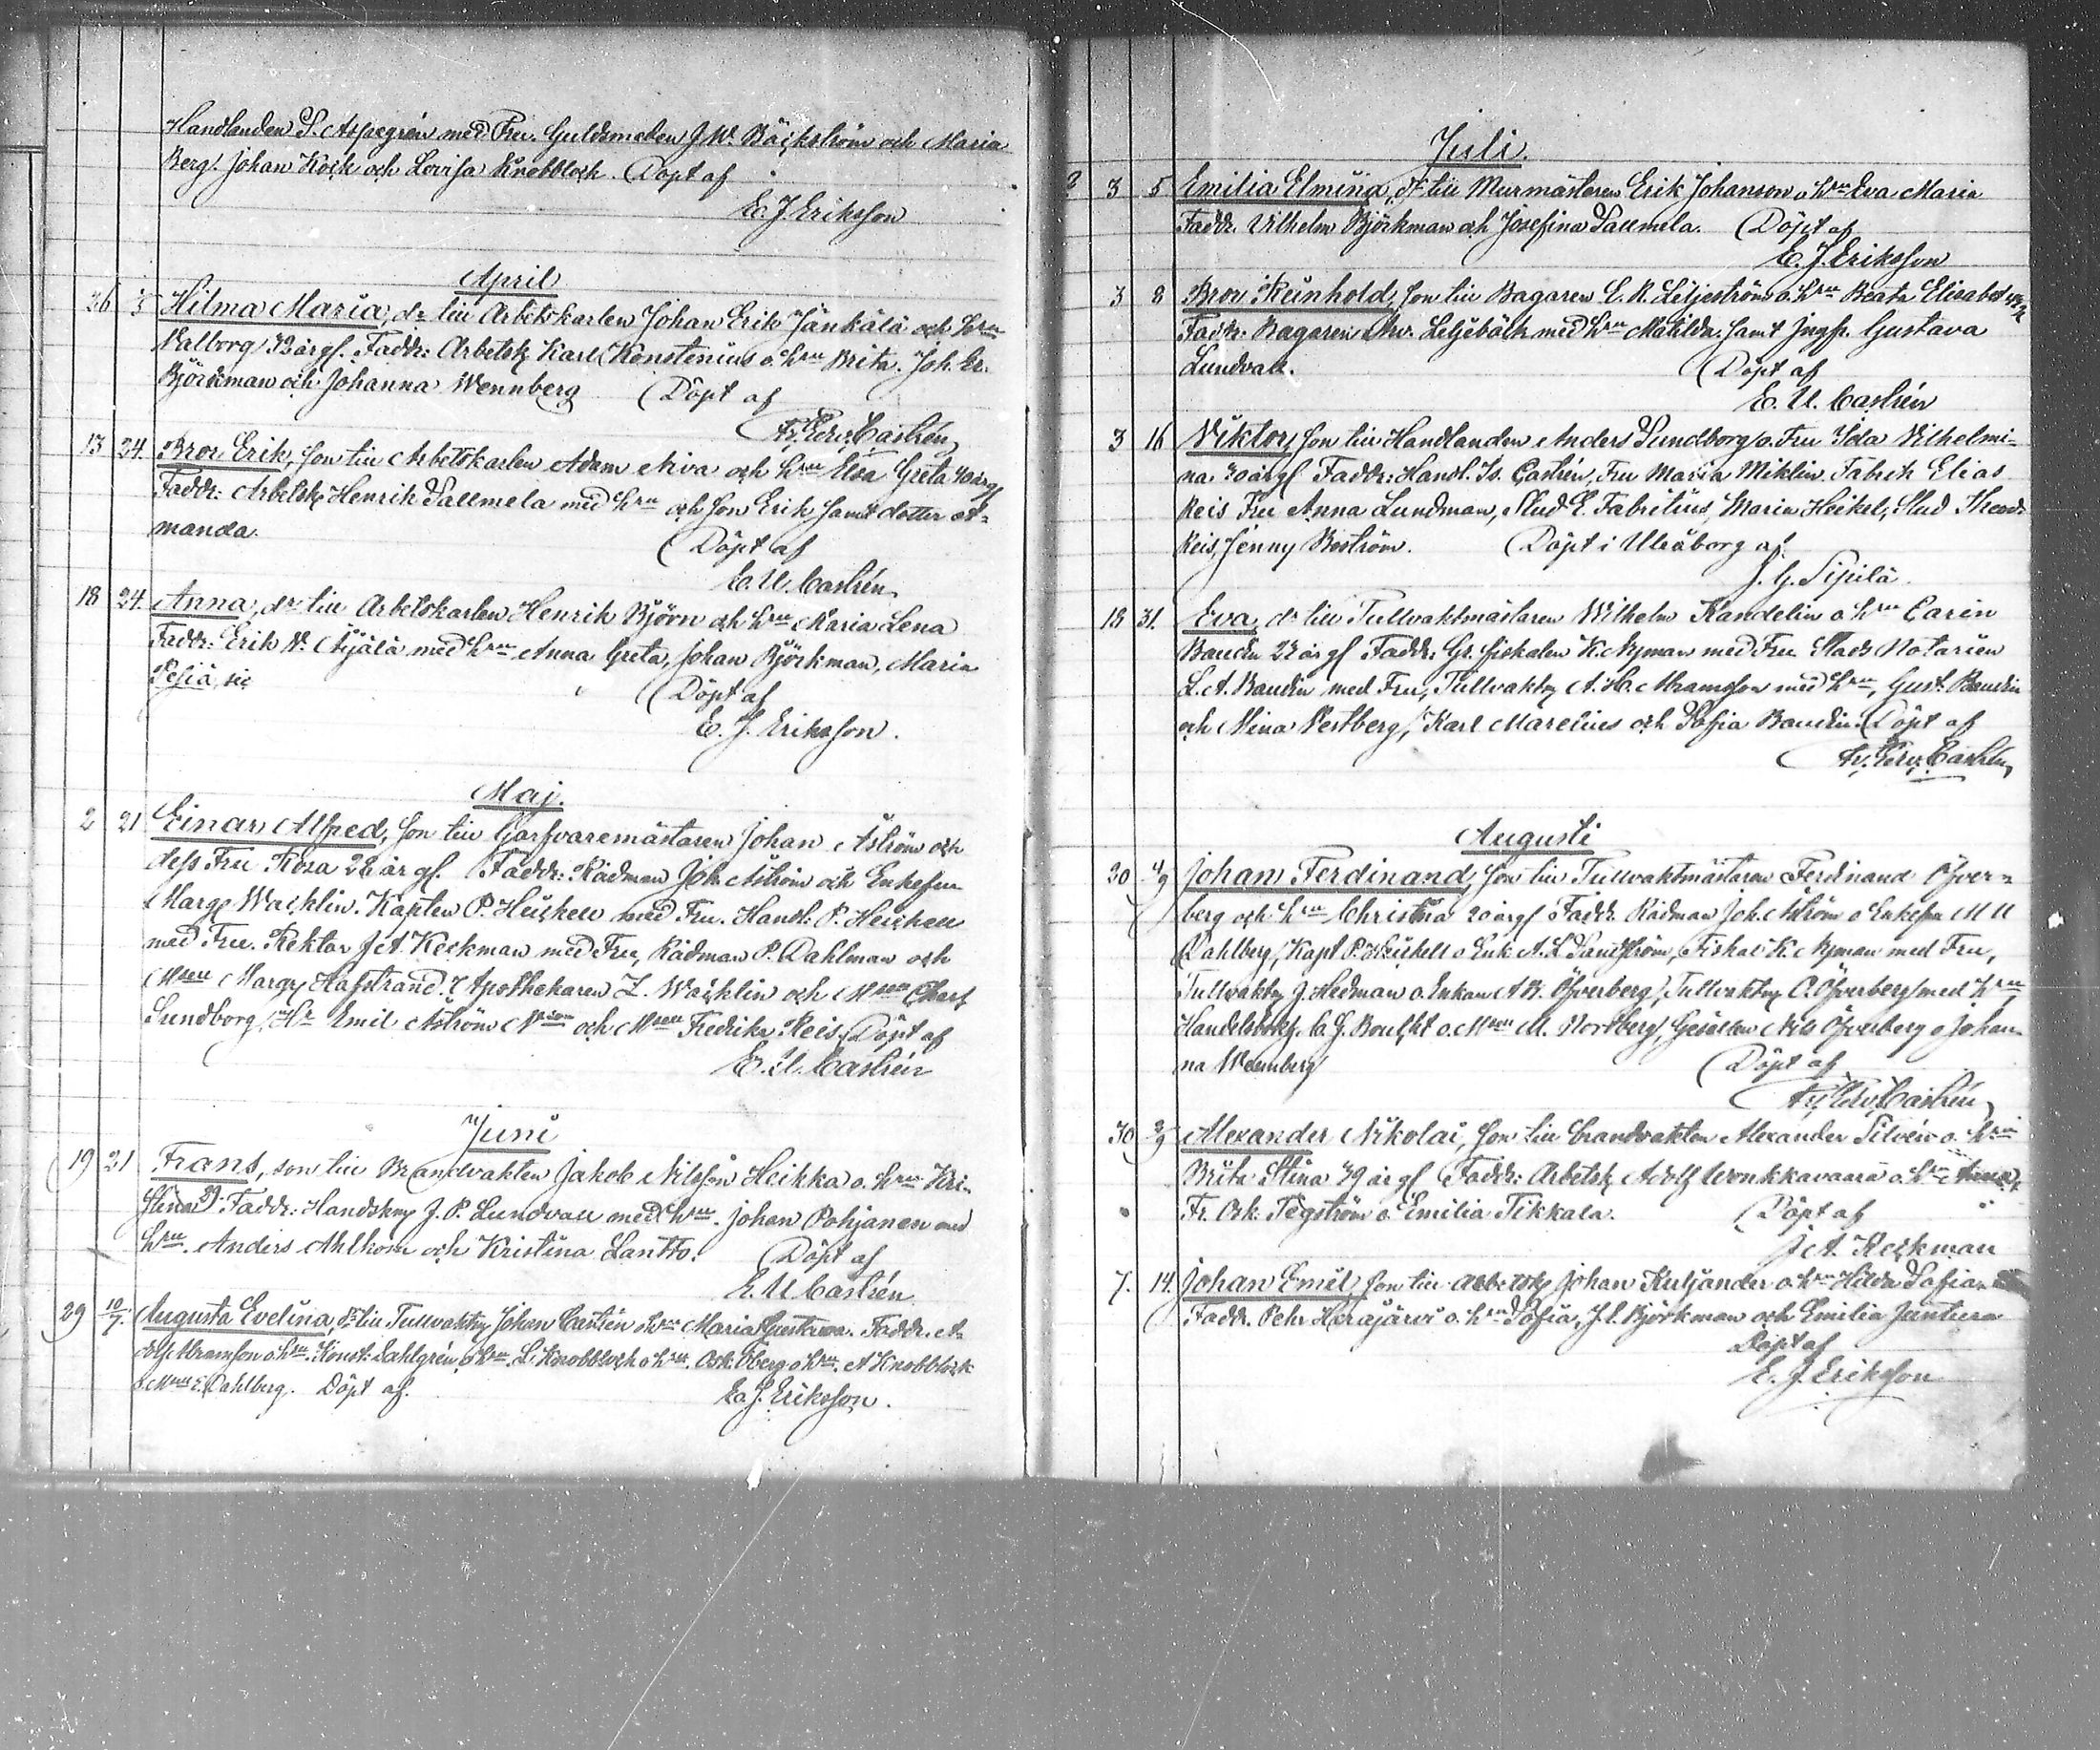 Handlanden S. Aspegrén med Fru. Guldsmeden J. W. Bäckström och Maria
Berg. Johan Kock och Lovisa Knobbloch. Döpt af
E. J. Eriksson
April
26 5 Hilma Maria, dr till Arbetskarlen Johan Erik Jänkälä och hru
Valborg 32 år gl. Faddr: Arbetsk Karl Konstenius o. hru Brita. Joh. Er.
Björkman och Johanna Wennberg Döpt af
Castrén
13 24. Bror Erik, son till Arbetskarlen Adam Niva och hru Elsa Greta 40 år gl
Faddr: Arbetsk Henrik Sallmela med hru och son Erik samt dotter A-
manda. Döpt af
E. U. Castrén
18 24. Anna, dr till Arbetskarlen Henrik Björn och hru Maria Lena
Faddr: Erik N. Äijälä med hru Anna Greta, Johan Björkman, Maria
Döpt af
E. J. Eriksson.
Maj.
2 21 Einar Alfred, son till Garfvaremästaren Johan Åström och
dess Fru Rosa 28 år gl. Faddr: Rådman Joh. Åström och Enkefru
Marg Wacklin. Kapten P. Heickell med Fru. Handl. P. Heickell
med Fru. Rektor J. A. Keckman med Fru, Rådman P. Dahlman och
Msell Margr Hafstrand. Apothekaren Z. Wacklin och Msell
Sundborg, Hr Emil Åström och Msell Fredrika Reis. Döpt af
E. U. Castrén
Juni
19 21 Frans, son till Brandvakten Jakob Nilsson Heikka o. hru Kri-
stina 29. Faddr: Handskm J. P. Lundvall med hru. Johan Pohjanen med
hru. Anders Ahlkorn och Kristina Lantto. Döpt af
E. U. Castrén
29 10/7. Augusta Evelina, dr till Tullvaktm Johan Castrén o hru Maria Gustava. Faddr. A-
dolf Abramson o hru. Konst: Dahlgrén o hru. L. Knobbloch o hru. Osk. Öberg o hru. A Knobblock
o Msell E. Dahlberg. Döpt af.
E. J. Eriksson.
Juli.
3 5 Emilia Elmina, dr till Murmästaren Erik Johanson o hru Eva Maria
Faddr. Vilhelm Björkman och Josefina Sallmela. Döpt af
E. J. Eriksson
3 8 Bror Reinhold, son till Bagaren C. R. Liljeström o. hru Beata Elisabet
Faddr. Bagaren Liljebäck med hru Matilda. samt Jngfr. Gustava
Lundvall. Döpt af
E. U. Castrén
3 16 Viktor, son till Handlanden Anders Sundborg o. Fru Ida Vilhelmi-
na 30 år gl Faddr: Handl. Is. Castrén, Fru Maria Miklin. Fabrik Elias
Reis Fru Anna Lundman, Stud E. Fabritius, Maria Heikel, Stud Theod.
Reis, Jenny Boström. Döpt i Uleåborg af
J. G. Sipilä
18 31. Eva, dr till Tullvaktmästaren Wilhelm Kandelin o hru Carin
Baudin 27 år gl Faddr: Gr. fiskalen K. Nyman med Fru Stads Notarien
L. A. Baudin med Fru, Tullvaktm A. H. Abramsson med hru, Gust. Baudin
och Mina Vestberg, Karl Marelius och Sofia Baudin. Döpt af
Castrén
Augusti
30 4/9 Johan Ferdinand, son till Tullvaktmästaren Ferdinand Öfver-
berg och hru Christina 20 år gl Faddr. Rådman Joh. Åström o Enkefru M U
Dahlberg, Kapt P. Heickell o Enk. A. L Sandström, Fiskal K. Nyman med Fru,
Tullvaktm J. Hedman o. Enkan A. B. Öfverberg, Tullvaktm C. Öfverberg med hru
Handelsbokh. C. G. Boucht o. Msell M. Nordberg, Gesällen Nils Öfverberg o Johan-
na Wennberg Döpt af
Castrén
30 3/9 Alexander Nikolai, son till brandvakten Alexander Silvén o. hru
Brita Stina 39 år gl Faddr: Arbetsk Adolf Wonkkavaara o. hru Anna,
Fr. Osk. Tegström o. Emilia Tikkala. Döpt af
J. A. Keckman
7. 14. Johan Emil, son till Arbetsk Johan Kuljander o hru Hilda Sofia
Faddr. Pehr Harajärvi o. hru Sofia, J. E. Björkman och Emilia Juntura
Döpt af
E. J. Eriksson